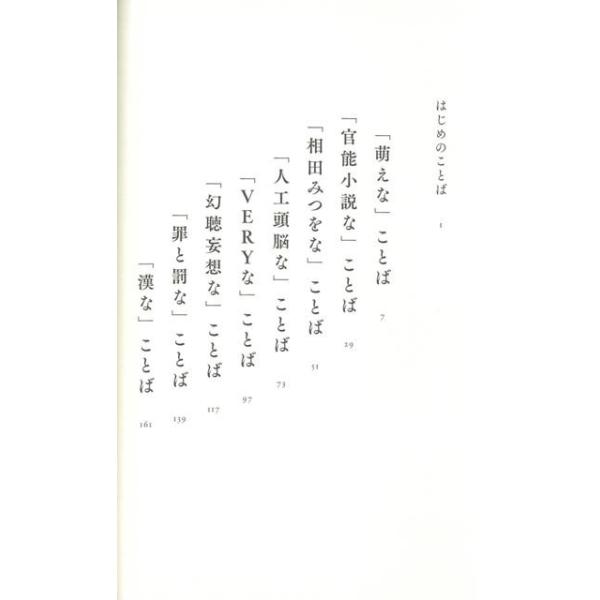 はじめのことば 1
「萌えな」ことば 7
「官能小説な」ことば 29
「相田みつをな」ことば 51
「人工頭脳な」ことば 73
「VERYな」ことば 97
「幻聴妄想な」ことば 117
「罪と罰な」ことば 139
「漢な」ことば 161